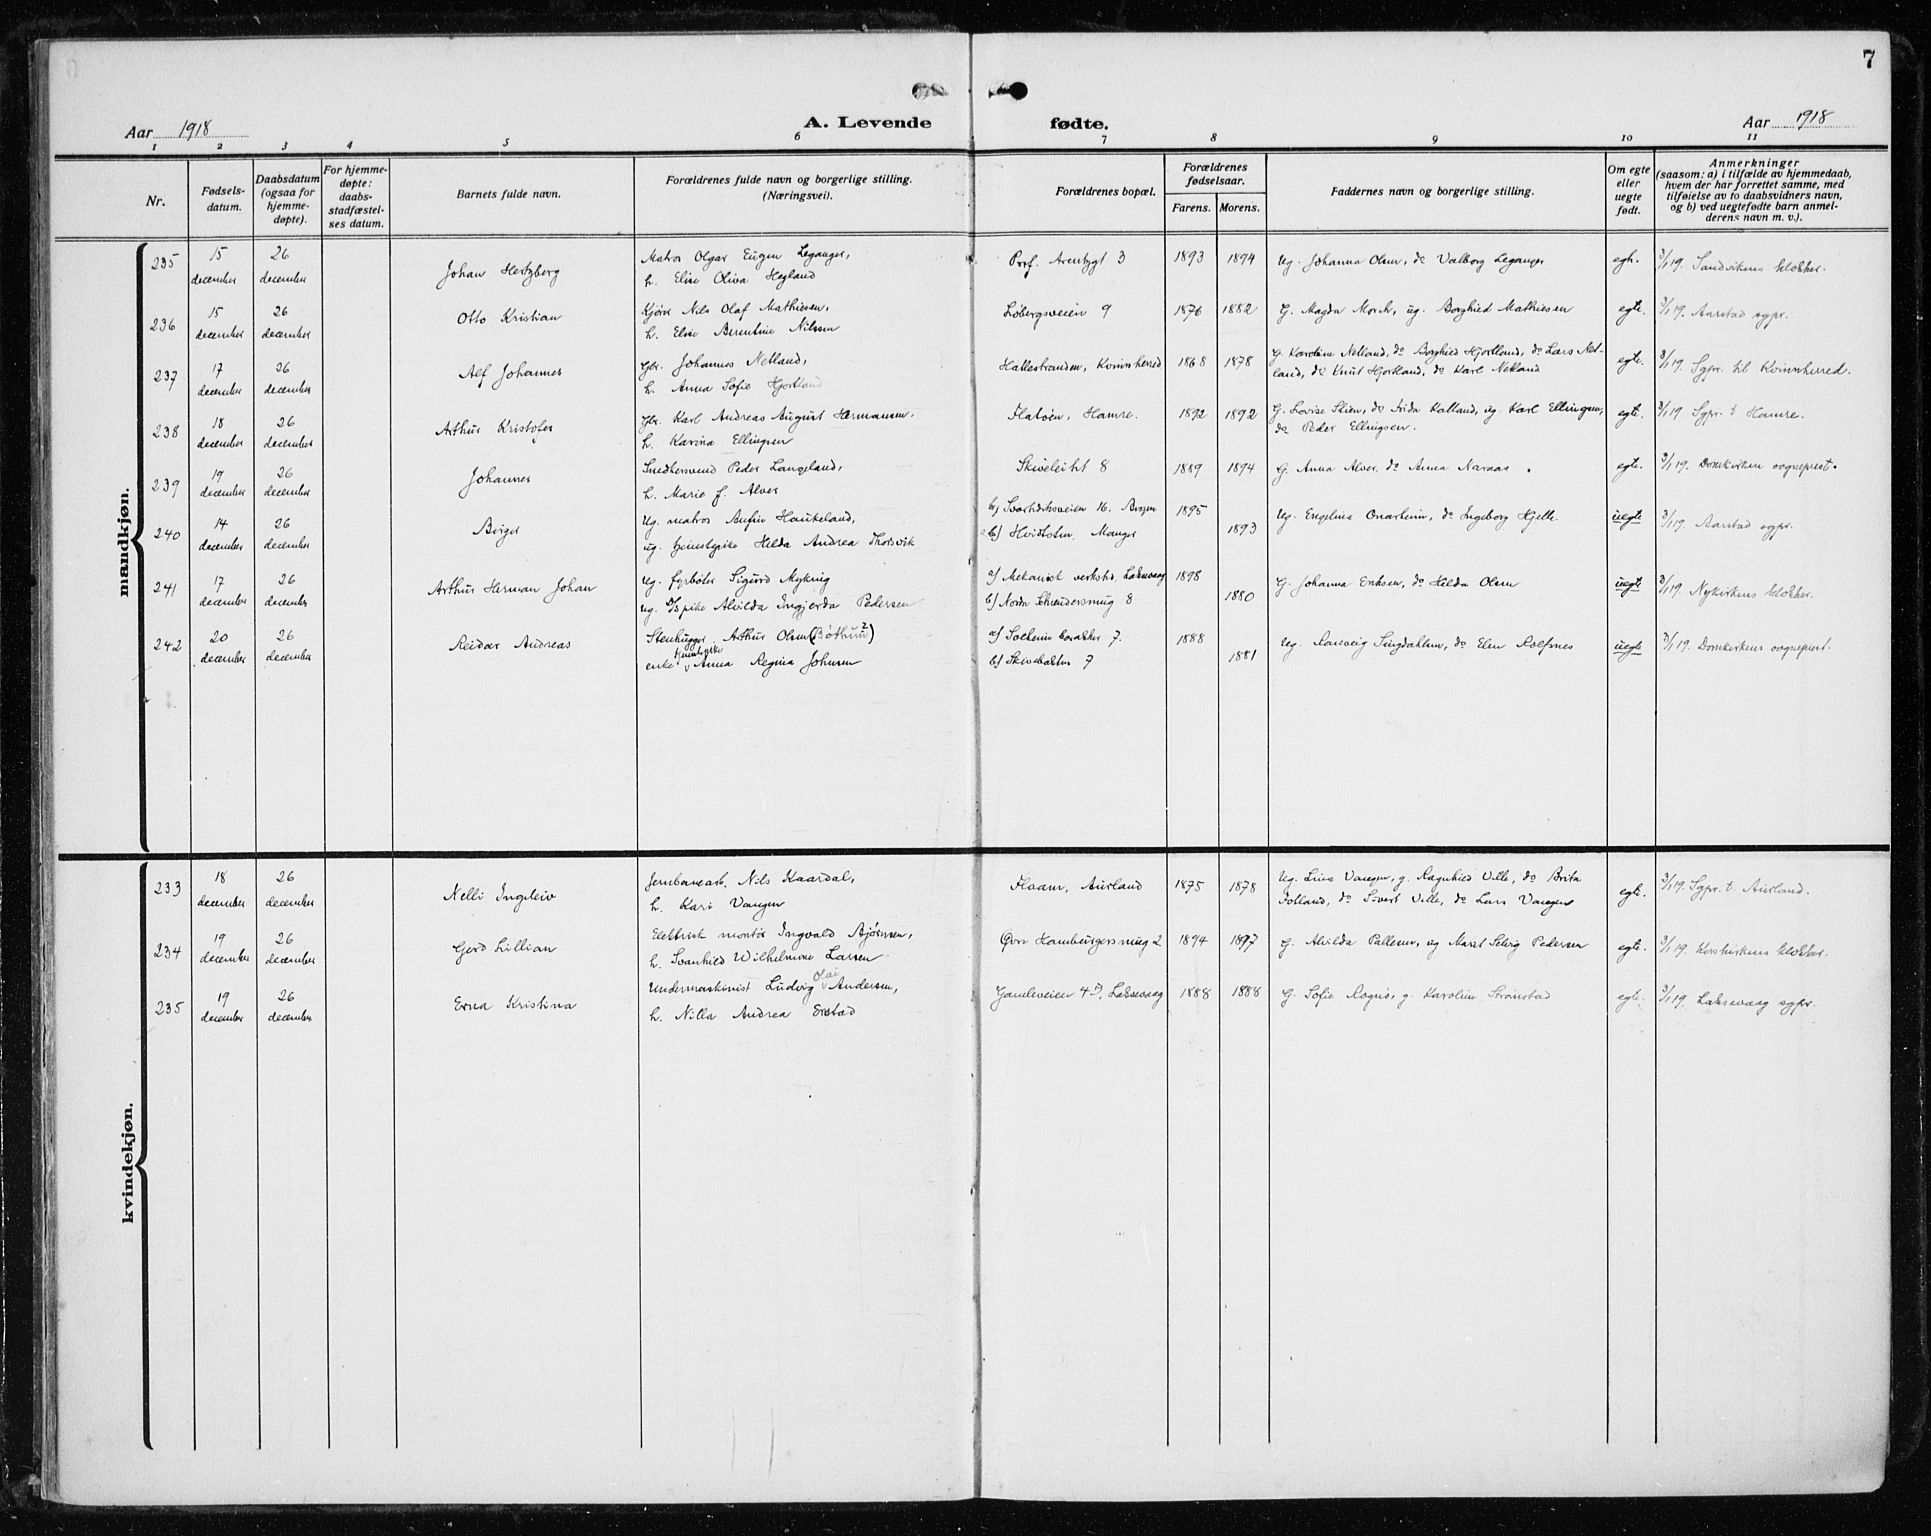 7
Aar 1918
A. Levende fødte.
Aar 1918
1 2 3 4 5 6 7 8 9 10 11
Nr.
Fødsels-
datum.
Daabsdatum
(ogsaa for
hjemme-
døpte).
For hjemme-
døpte:
daabs-
stadfæstel-
ses datum.
Barnets fulde navn.
Forældrenes fulde navn og borgerlige stilling.
(Næringsvei).
Forældrenes bopæl.
Forældrenes
fødselsaar.
Farens. Morens.
Faddernes navn og borgerlige stilling.
Om egte
eller
uegte
født.
Anmerkninger
(saasom: a) i tilfælde av hjemmedaab,
hvem der har forrettet samme, med
tilføielse av to daabsvidners navn,
og b) ved uegtefødte barn anmel-
derens navn m. v.).
mandkjøn.
235 15 december 26 december Johan Hertzberg
Matros Olgar Eugen Leganger,
h. Elise Oliva Hegland
Prof. Arentzgt 3 1893 1894 Ug. Johanna Olsen, do Valborg Leganger egte. 3/1 19. Sandvikens klokker.
236 15 december 26 december Otto Kristian
Kjører Nils Olaf Mathiesen,
h. Elise Berentine Nilssen
Løbergsveien 9 1876 1882 G. Magda Morch, ug. Borghild Mathiesen egte. 3/1 19. Aarstad sgpr.
237 17 december 26 december Alf Johannes
Gbr. Johannes Netland,
h. Anna Sofie Hjortland
Hallestranden, Kvinnherred 1868 1878 G. Karoline Netland, do Borghild Hjortland, do Lars Net-
land, do Knut Hjortland, do Karl Netland egte. 3/1 19. Sgpr. til Kvinnherred.
238 18 december 26 december Arthur Kristofer
Gbr. Karl Andreas August Hermansen,
h. Karina Ellingsen
Flatøen, Hamre. 1892 1892 G. Lovise Skien, do Frida Kalland, ug. Karl Ellingsen,
do Peder Ellingsen. egte. 3/1 19 Sgpr. t Hamre.
239 19 december 26 december Johannes
Smedsvend Peder Langeland,
h. Marie f. Alver
Skiveleitet 8 1889 1894 G. Anna Alver, do Anna Naraas. egte. 3/1 19. Domkirken vogneprest.
240 14 december 26 december Birger
Ug. matros Anfin Haukeland,
ug. tjenestepike Hilda Andrea Thorsvik
a) Svartediksveien 16. Bergen 1895
b) Hvidsten, Manger 1893
Ug. Engelina Onarheim, do Ingeborg Hjelle. uegte 3/1 19. Aarstad sgpr.
241 17 december 26 december Arthur Herman Johan
Ug. fyrbøter Sigurd Myking
ug. Alvilda Ingjerda Pedersen
a) Mekanisk verksted, Laksevaag 1898
b) Nordre Skrædersmug 8 1880
G. Johanna Eriksen, do Hilda Olsen uegte 3/1 19. Nykirkens klokker.
242 20 december 26 december Reidar Andreas
Stenhugger Arthur Olsen (Bøthun?)
enke tjenestepike Anna Regina Johnsen
a) Solheim barakker 7. 1888
b) Skivebakken 7 1881
Ug. Ranveig Singdahlsen, do Elen Rolfsnes uegte 3/1 19. Domkirkens vogneprest.
kvindekjøn.
233 18 december 26 december Nelli Ingeleiv
Jernbanearb. Nils Kaardal,
h. Kari Vangen
Flaam, Aurland 1875 1878 Ug. Lina Vangen, g. Ragnhild Ville, do Brita
Fotland, do Sivert Ville, do Lars Vangen egte. 3/1 19. Sgpr. t Aurland.
234 19 december 26 december Gerd Lillian
Elektrisk montør Ingvald Bjørnsen,
h. Svanhild Wilhelmine Larsen
Øvre Hamburgersmug 2 1894 1897 G. Alvilda Pallesen, ug Marit Solvig Pedersen egte. 3/1 19. Korskirkens klokker.
235 19 december 26 december Erna Kristina
Undermaskinist Ludvig Olai Andersen,
h. Nilla Andrea Erstad
Gamleveien 4D, Laksevaag 1888 1888 G. Sofie Rognø, g. Karoline Strømstad egte. 3/1 19. Laksevaag sgpr.